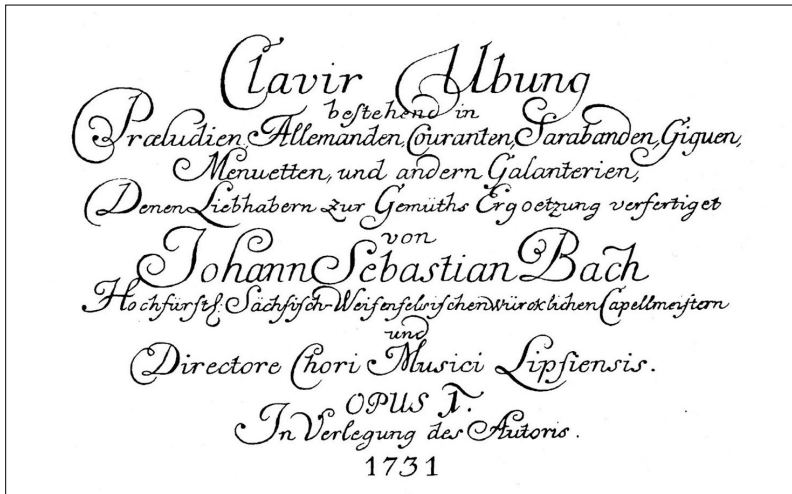 Clavir Ubung
bestehend in
Præludien, Allemanden, Couranten, Sarabanden, Giquen,
Menuetten, und andern Galanterien,
Denen Liebhabern zur Gemüths Ergoetzung verfertiget
von
Johann Sebastian Bach
Hochfürstl: Sächsisch-Weisenfelsischen würcklichen Capellmeistern
und
Directore Chori Musici Lipsiensis.
OPUS 1.
In Verlegung des Autoris.
1731